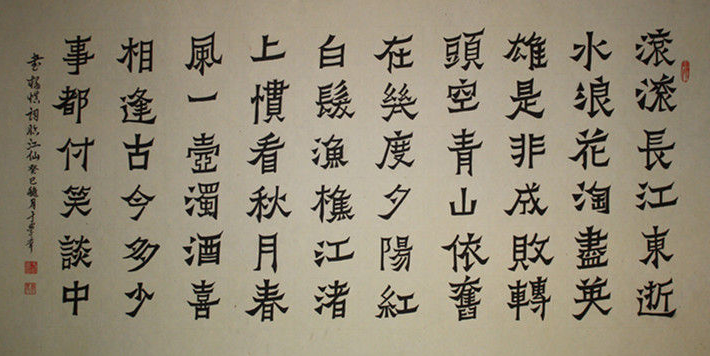 滾滾長江東逝
水浪花淘盡英
雄是非成敗轉
頭空青山依舊
在幾度夕陽紅
白髮漁樵江渚
上慣看秋月春
風一壺濁酒喜
相逢古今多少
事都付笑談中
書楊慎詞臨江仙癸巳